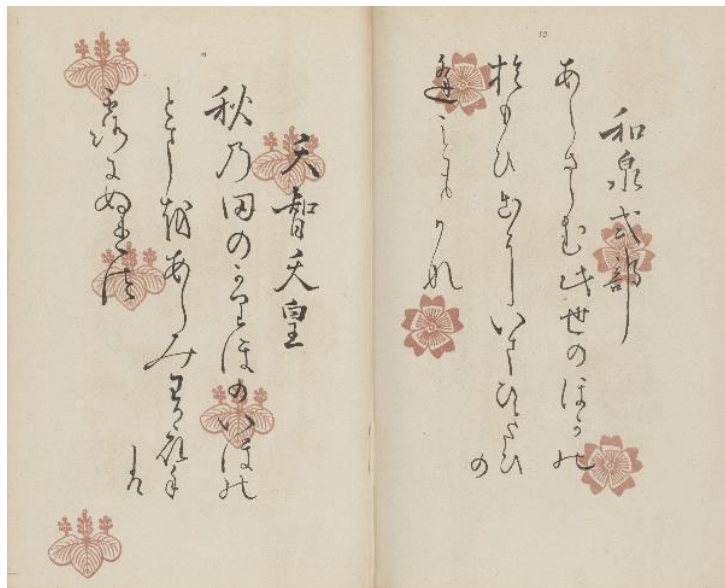 和泉式部
あらさらむ此世のほかの
おもひ出にいまひとたひの
逢こともかな
天智天皇
秋乃田のかりほのいほの
とまをあらみわか衣手は
露にぬれつつ